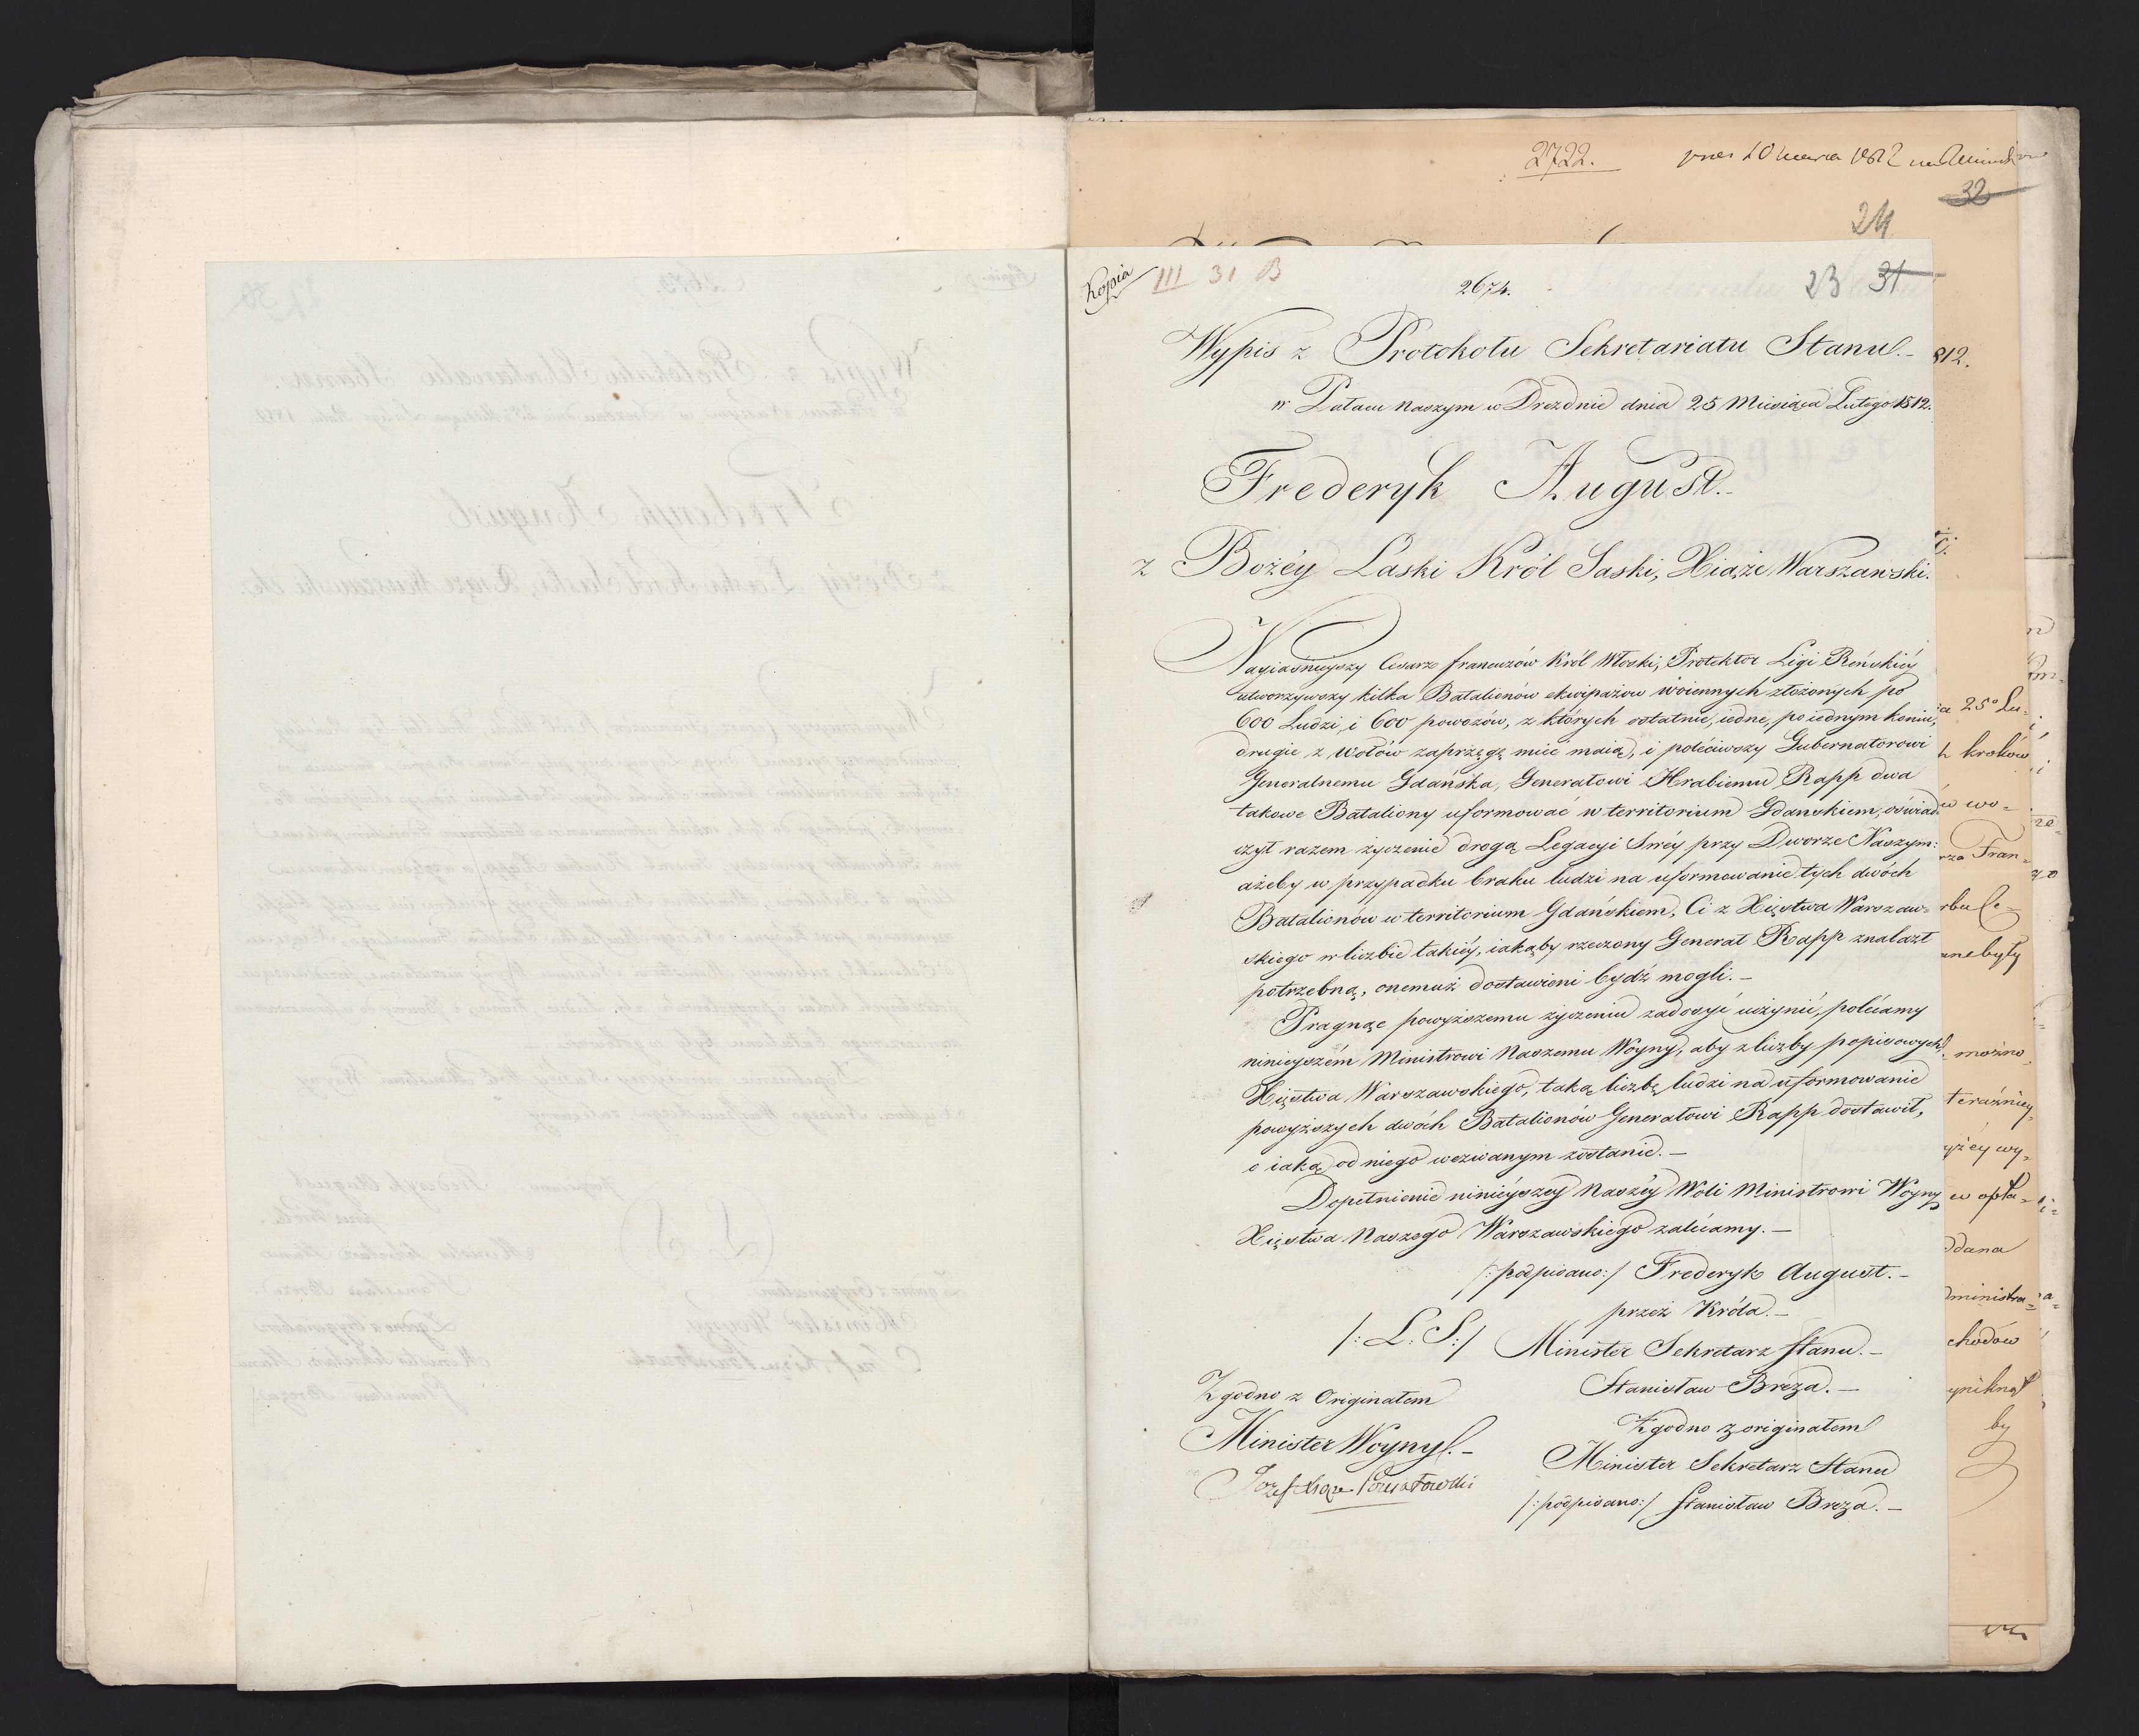 2722.
32
24
Kopia
III 31 B
2674.
23 31
812.
Wypis z Protokołu Sekretariatu Stanu.-
w Pałacu Naszym w Dreźdnie dnia 25 Miesiąca Lutego 1812.
Frederyk August.-
z Bożéy Łaski Król Saski, Xiąże Warszawski.
Nayiaśnieyszy Cesarz francuzów Król Włoski, Protektor Ligi Reńskiéy
utworzywszy kilka Batalionów ekwipażow woiennych złożonych po
600 Ludzi, i 600 powozów, z których ostatnie, iedne, po iednym koniu,
drugie z wołów zaprzęgę mieć maią, i poleciwszy Gubernatorowi
Generalnemu Gdańska, Generałowi Hrabiemu Rapp dwa
takowe Bataliony uformować w territorium Gdańskiem, oświad-
czył razem życzenie drogą Legacyi Swéy przy Dworze Naszym:
ażeby w przypadku braku ludzi na uformowanie tych dwóch
Batalionów w territorium Gdańskiem, Ci z Xięstwa Warszaw-
skiego w liczbie takiéy, iakąby rzeczony Generał Rapp znalazł
potrzebną, onemuż dostawieni bydź mogli.-
Pragnąc powyższemu życzeniu zadosyć uczynić, polécamy
ninieyszém Ministrowi Naszemu Woyny, aby z liczby popisowych
Xięstwa Warszawskiego, taką liczbę ludzi na uformowanie
powyższych dwóch Batalionów Generałowi Rapp dostawił,
o iaką od niego wezwanym zostanie.-
Dopełnienie ninieyszey Naszéy Woli Ministrowi Woyny
Xięstwa Naszego Warszawskiego zalécamy.-
/:podpisano:/ Frederyk August.-
przez Króla.-
/:L:S:/ Minister Sekretarz Stanu.-
Stanisław Breza.-
Zgodno z Originałem
Minister Woyny.-
Józef Xiąże Poniatowski
Zgodno z originałem
Minister Sekretarz Stanu
/:podpisano:/ Stanisław Breza.-
25º Lu-
kroków
wo-
Fran-
możno
teraźniey-
wy-
opła-
ddana
dministra-
chodów
yniknął
by